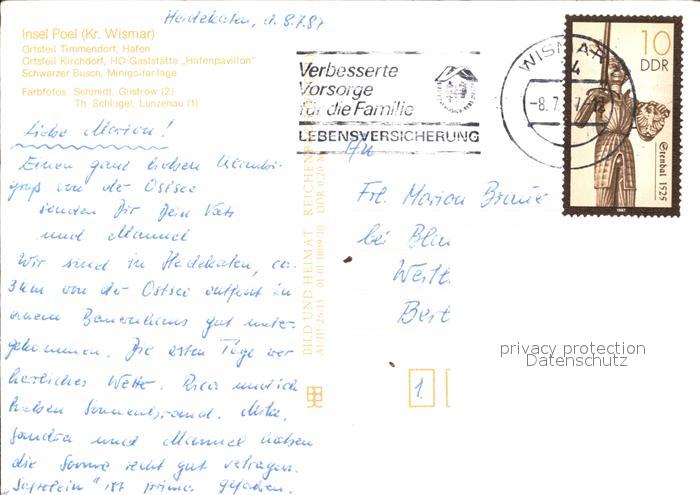 Heidekaten, d. 8.7.87
Insel Poel (Kr. Wismar)
Ortsteil Timmendorf, Hafen
Ortsteil Kirchdorf, HO-Gaststätte „Hafenpavillon"
Schwarzer Busch, Minigolfanlage
Farbfotos: Schmidt, Güstrow (2)
Th. Schlügel, Lunzenau (1)
Verbesserte
Vorsorge
für die Familie
LEBENSVERSICHERUNG
WISMAR
-8.7.
10
DDR
Stenbal 1525
1987
Liebe Marion!
Einen ganz lieben
gruß von der Ostsee
senden Dir Dein Vati
und Manuel
Wir sind in Heidekaten, ca.
3km von der Ostsee entfernt in
einem Bauernhaus gut unter-
gekommen. Die ersten Tage war
herrliches Wetter. und ich
haben Sonnenbrand.
Sandra und Manuel haben
die Sonne recht gut vertragen.
ist prima gefahren.
BILD UND HEIMAT REICHENB
DDR 0,20 M
An
Frl. Marion
bei
1.
privacy protection
Datenschutz